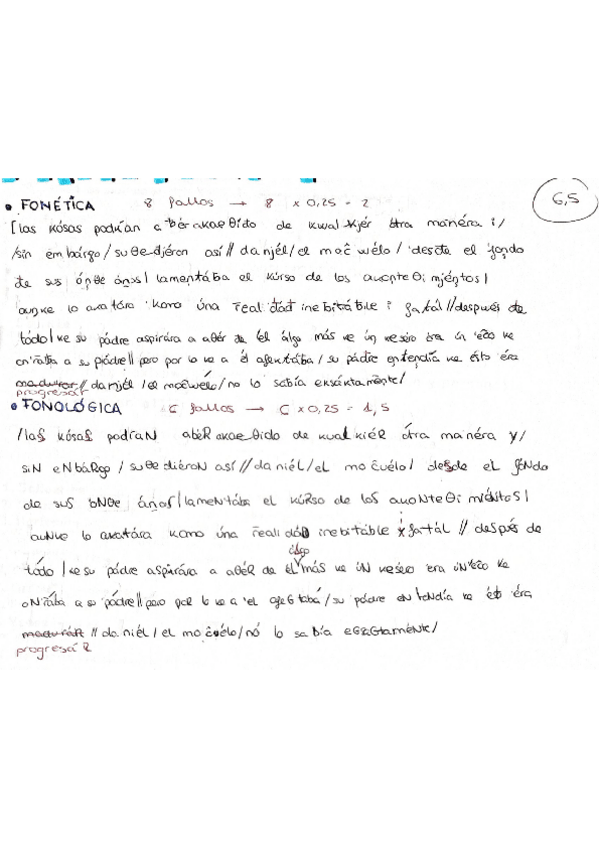 • FONÉTICA 8 fallos → 8 x 0,25 = 2 6,5
[las kósas podrían a bér akaeθído de kwal kjér ótra manéra i/
/sin embárgo/suθedjéron así// danjél/el močwélo/desde el fondo
de sus ónθe áños/ lamentába el kúrso de los akonteθimjéntos/
auŋke lo akatára komo úna r̄ealidád inebitáble i fatál//después de
tódo/ke su pádre aspirára a aθér de él álgo más ke úŋ keséro éra úŋ éčo ke
a su pádre// pero por lo ke a él afektába/su pádre entendía ke ésto éra
progresár /danjél/el močwélo/no lo sabía eksáktaménte/
• FONOLÓGICA 6 fallos → 6 x 0,25 = 1,5
/las kósas podríaN abéR akaeθido de kualkiéR ótra manéra y/
siN eNbáRgo/suθediéroN así//daniél/el močuélo/desde el fóNdo
de sus óNθe áños/lameNtába el kúRso de los akoNteθimiéNtos/
auNke lo akatára komo úna r̄ealidáD inebitáble y fatál // después de
tódo/ke su pádre aspirára a aθéR de él álgo más ke úN keséro éra úN éčo ke
a su pádre//pero poR lo ke a él afeGtába/su pádre eNteNdía ke ésto éra
progresáR //daniél/el močuélo/nó lo sabía eGsáGtaméNte/